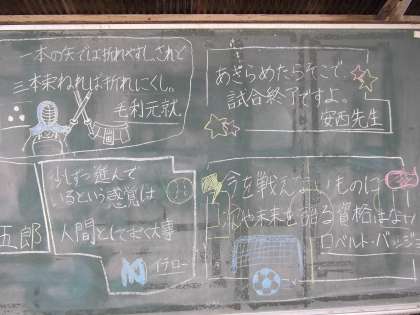 一本の矢では折れやすし、されど
三本束ねれば折れにくし。
毛利元就
あきらめたらそこで、
試合終了ですよ。
安西先生
少しずつ進んで
いるという感覚は
人間としてすごく大事
イチロー
五郎
今を戦えないものに
次や未来を語る資格はない
ロベルト・バッジョ